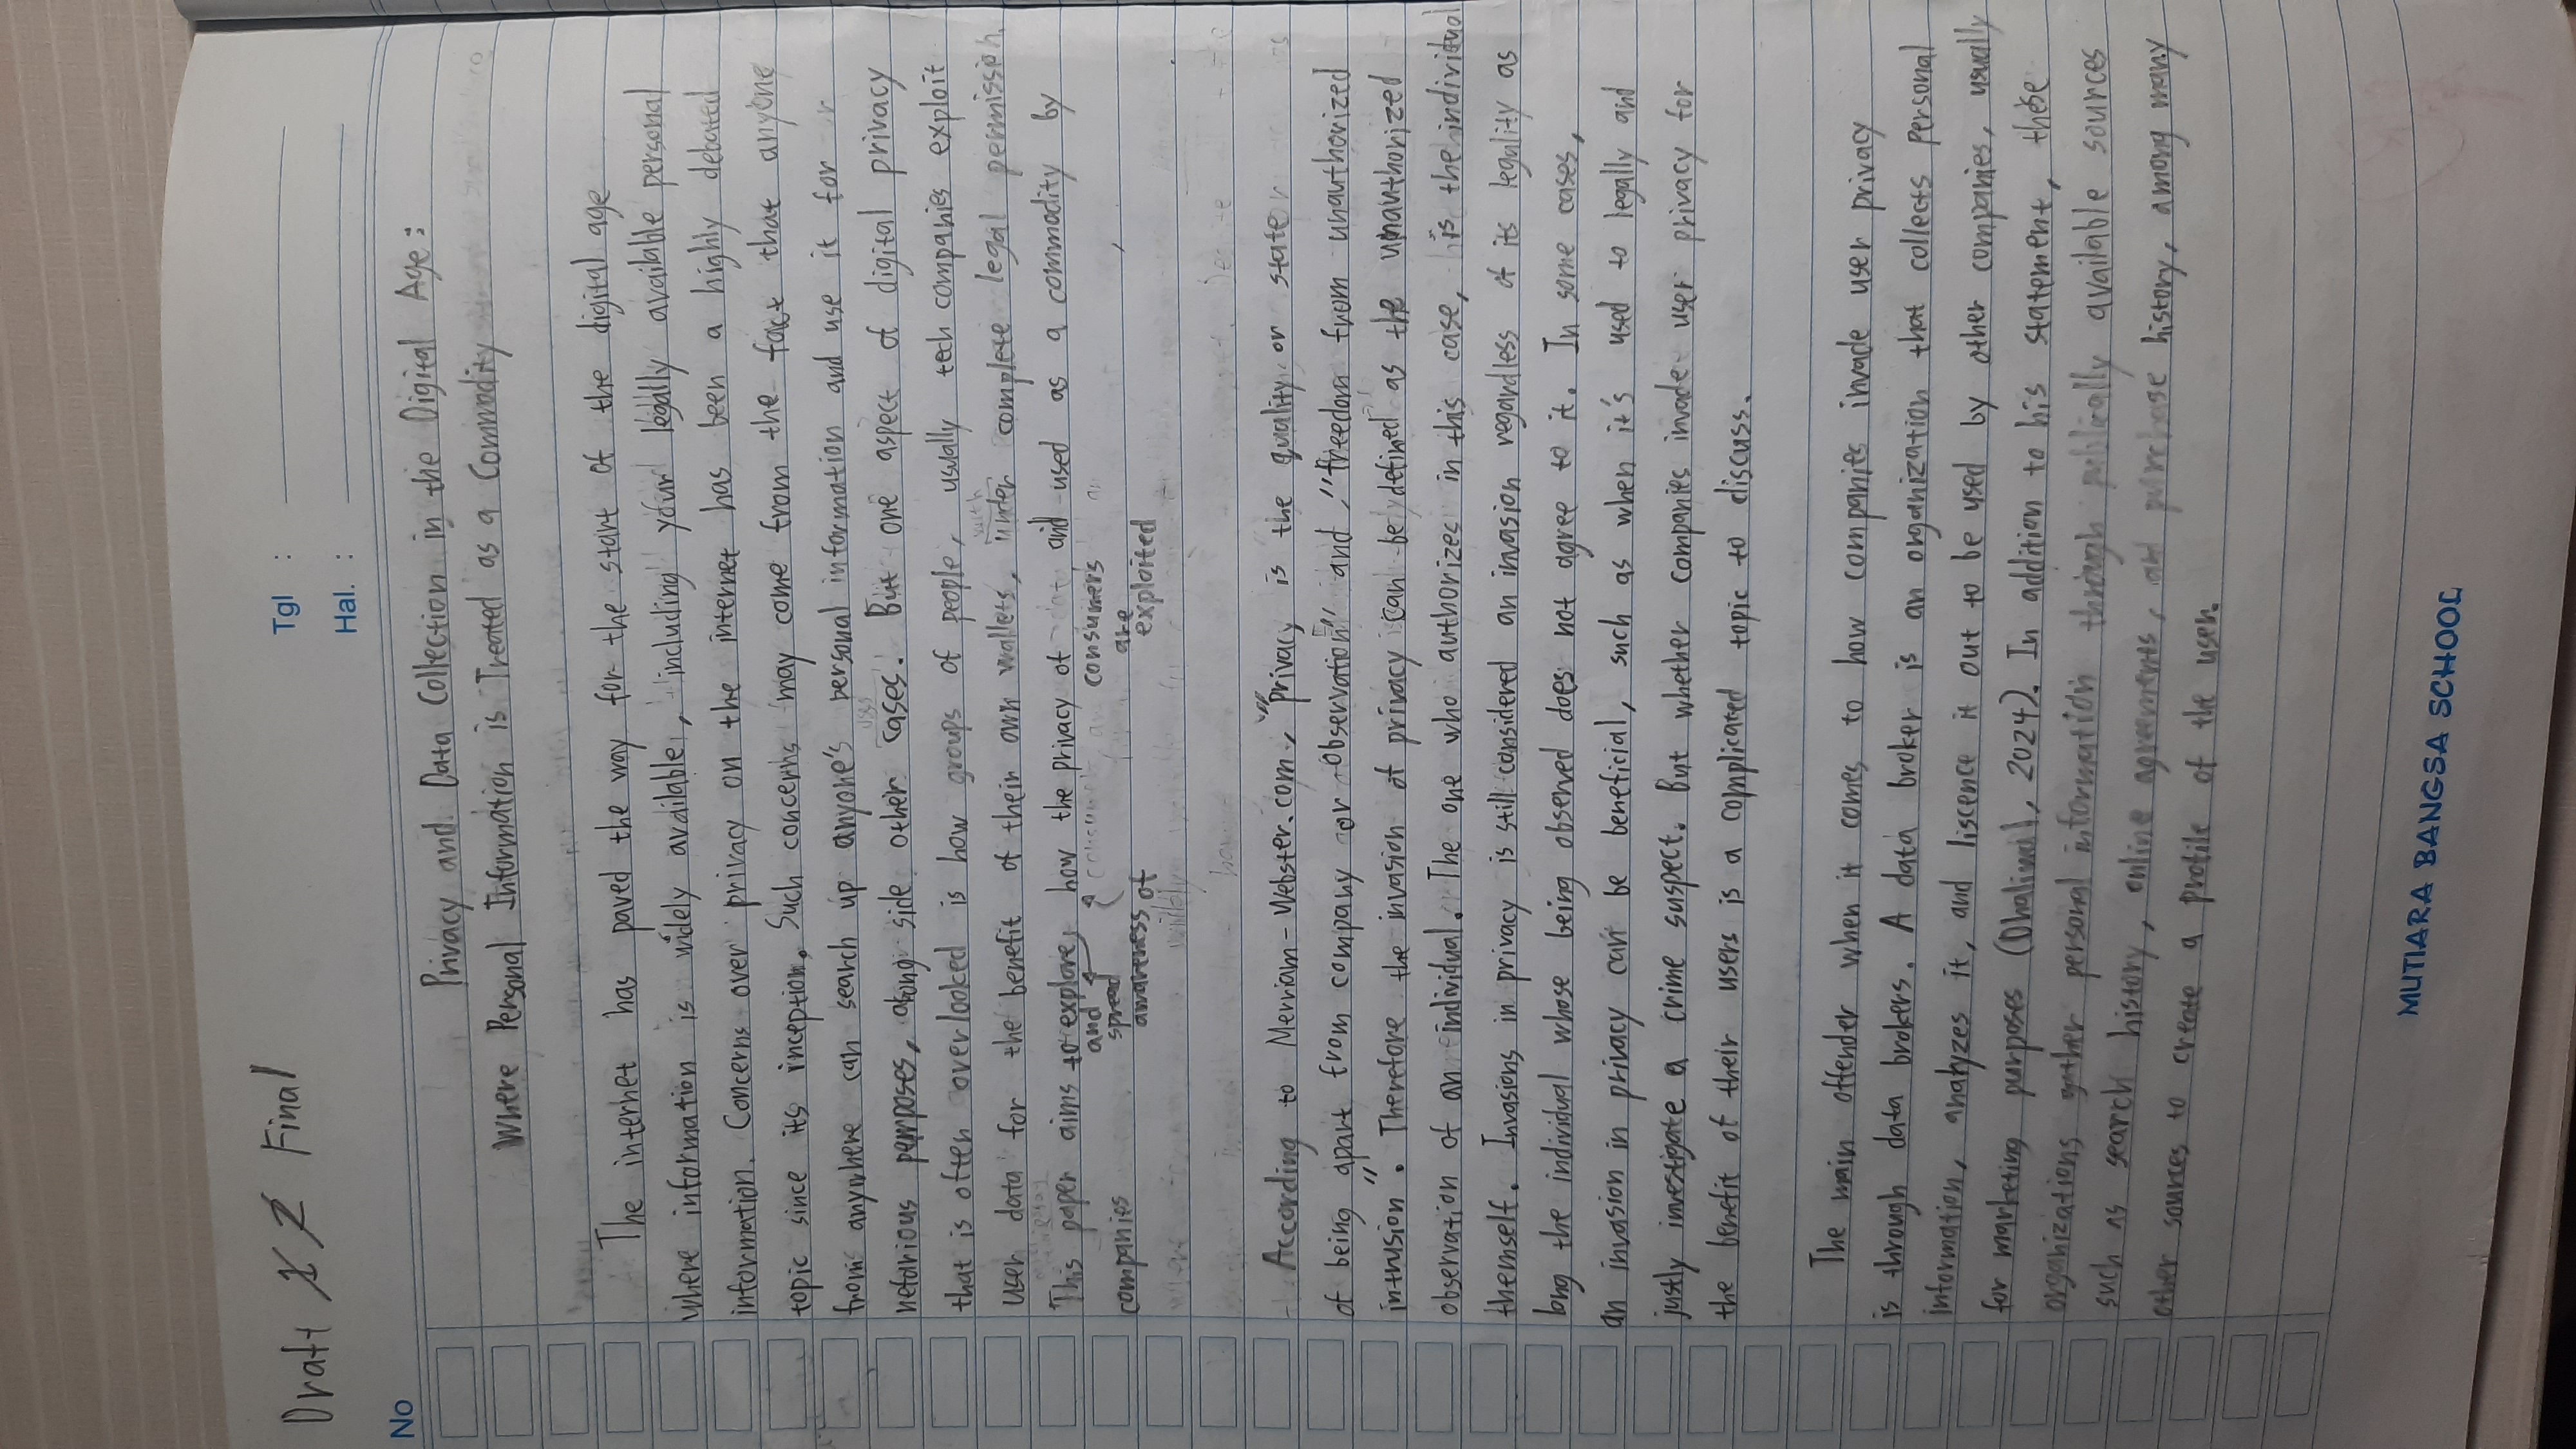 Draft 1 2 Final
Tgl :
Hal. :
No
Privacy and Data Collection in the Digital Age:
Where Personal Information is Treated as a Commodity
The internet has paved the way for the start of the digital age
where information is widely available, including your legally available personal
information. Concerns over privacy on the internet has been a highly debated
topic since its inception. Such concerns may come from the fact that anyone
from anywhere can search up anyone's personal information and use it for
nefarious perposes, along side other cases. But one aspect of digital privacy
uses
that is often overlooked is how groups of people, usually tech companies exploit
user data for the benefit of their own wallets, under complete legal permission.
with
This paper aims to explore, how the privacy of and used as a commodity by
and spread awareness of
consumers are exploited
companies
According to Merriam-Webster.com, "privacy is the quality or state
of being apart from company or observation" and "freedom from unauthorized
intrusion". Therefore the invasion of privacy can be defined as the unauthorized
observation of an individual. The one who authorizes in this case, is the individual
themself. Invasions in privacy is still considered an invasion regardless of its legality as
long the individual whose being observed does not agree to it. In some cases,
an invasion in privacy can be beneficial, such as when it's used to legally and
justly investigate a crime suspect. But whether companies invade user privacy for
the benefit of their users is a complicated topic to discuss.
The main offender when it comes to how companies invade user privacy
is through data brokers. A data broker is an organization that collects personal
information, analyzes it, and liscence it out to be used by other companies, usually
for marketing purposes (Dhaliwal, 2024). In addition to his statement, these
organizations gather personal information through publically available sources
such as search history, online agreements, and purchase history, among many
other sources to create a profile of the user.
MUTIARA BANGSA SCHOOL